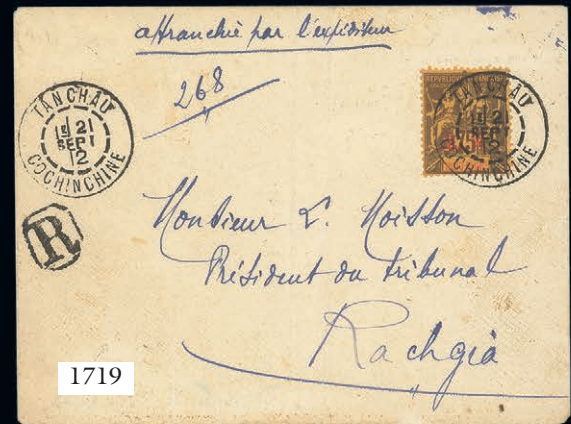 affranchie par l'expéditeur
268
TANCHAU
1E 21
SEPT
12
COCHINCHINE
REPUBLIQUE FRANCAISE
TANCHAU
1E 21
SEPT
12
COCHINCHINE
R
Monsieur L. Moisson
Président du tribunal
Rachgia
1719